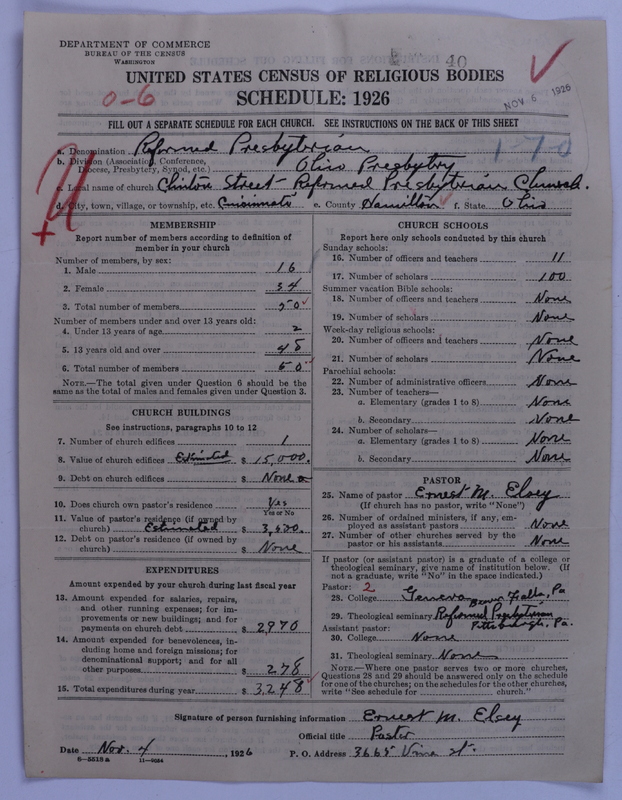 DEPARTMENT OF COMMERCE
BUREAU OF THE CENSUS
WASHINGTON
40
UNITED STATES CENSUS OF RELIGIOUS BODIES
SCHEDULE: 1926
0-6
NOV 6 1926
FILL OUT A SEPARATE SCHEDULE FOR EACH CHURCH. SEE INSTRUCTIONS ON THE BACK OF THIS SHEET
a. Denomination Reformed Presbyterian
170
b. Division (Association, Conference, Diocese, Presbytery, Synod, etc.) Ohio Presbytry
c. Local name of church Clinton Street Reformed Presbyterian Church.
d. City, town, village, or township, etc. Cincinnati e. County Hamilton f. State Ohio
MEMBERSHIP
Report number of members according to definition of member in your church
Number of members, by sex:
1. Male 16
2. Female 34
3. Total number of members 50
Number of members under and over 13 years old:
4. Under 13 years of age 2
5. 13 years old and over 48
6. Total number of members 50
NOTE.—The total given under Question 6 should be the same as the total of males and females given under Question 3.
CHURCH BUILDINGS
See instructions, paragraphs 10 to 12
7. Number of church edifices 1
8. Value of church edifices Estimated $ 15,000.
9. Debt on church edifices $ None
10. Does church own pastor's residence Yes
Yes or No
11. Value of pastor's residence (if owned by church) Estimated $
12. Debt on pastor's residence (if owned by church) $ None
EXPENDITURES
Amount expended by your church during last fiscal year
13. Amount expended for salaries, repairs, and other running expenses; for improvements or new buildings; and for payments on church debt $ 2970
14. Amount expended for benevolences, including home and foreign missions; for denominational support; and for all other purposes $ 278
15. Total expenditures during year $ 3,248
CHURCH SCHOOLS
Report here only schools conducted by this church
Sunday schools:
16. Number of officers and teachers 11
17. Number of scholars 100
Summer vacation Bible schools:
18. Number of officers and teachers None
19. Number of scholars None
Week-day religious schools:
20. Number of officers and teachers None
21. Number of scholars None
Parochial schools:
22. Number of administrative officers None
23. Number of teachers—
a. Elementary (grades 1 to 8) None
b. Secondary None
24. Number of scholars—
a. Elementary (grades 1 to 8) None
b. Secondary None
PASTOR
25. Name of pastor Ernest M. Elsey
(If church has no pastor, write "None")
26. Number of ordained ministers, if any, employed as assistant pastors None
27. Number of other churches served by the pastor or his assistants None
If pastor (or assistant pastor) is a graduate of a college or theological seminary, give name of institution below. (If not a graduate, write "No" in the space indicated.)
Pastor: 2
28. College Geneva Beaver Falls, Pa
29. Theological seminary Reformed Presbyterian Pittsburgh, Pa.
Assistant pastor:
30. College None
31. Theological seminary None
NOTE.—Where one pastor serves two or more churches, Questions 28 and 29 should be answered only on the schedule for one of the churches; on the schedules for the other churches, write "See schedule for church."
Signature of person furnishing information Ernest M. Elsey
Official title Pastor
Date Nov. 4, 1926 P. O. Address 3665 Vine St.
8—5518a 11—9054